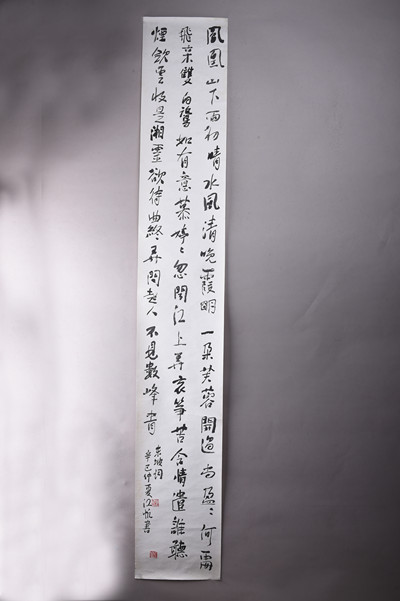 鳳凰山下雨初晴水風清晚霞明一朵芙蓉開過尚盈〻何處
飛來雙白鷺如有意慕婷〻忽聞江上弄哀箏苦含情遣誰聽
煙斂雲收是湘靈欲待曲終尋問取人不見數峰青
東坡詞
辛巳仲夏江書